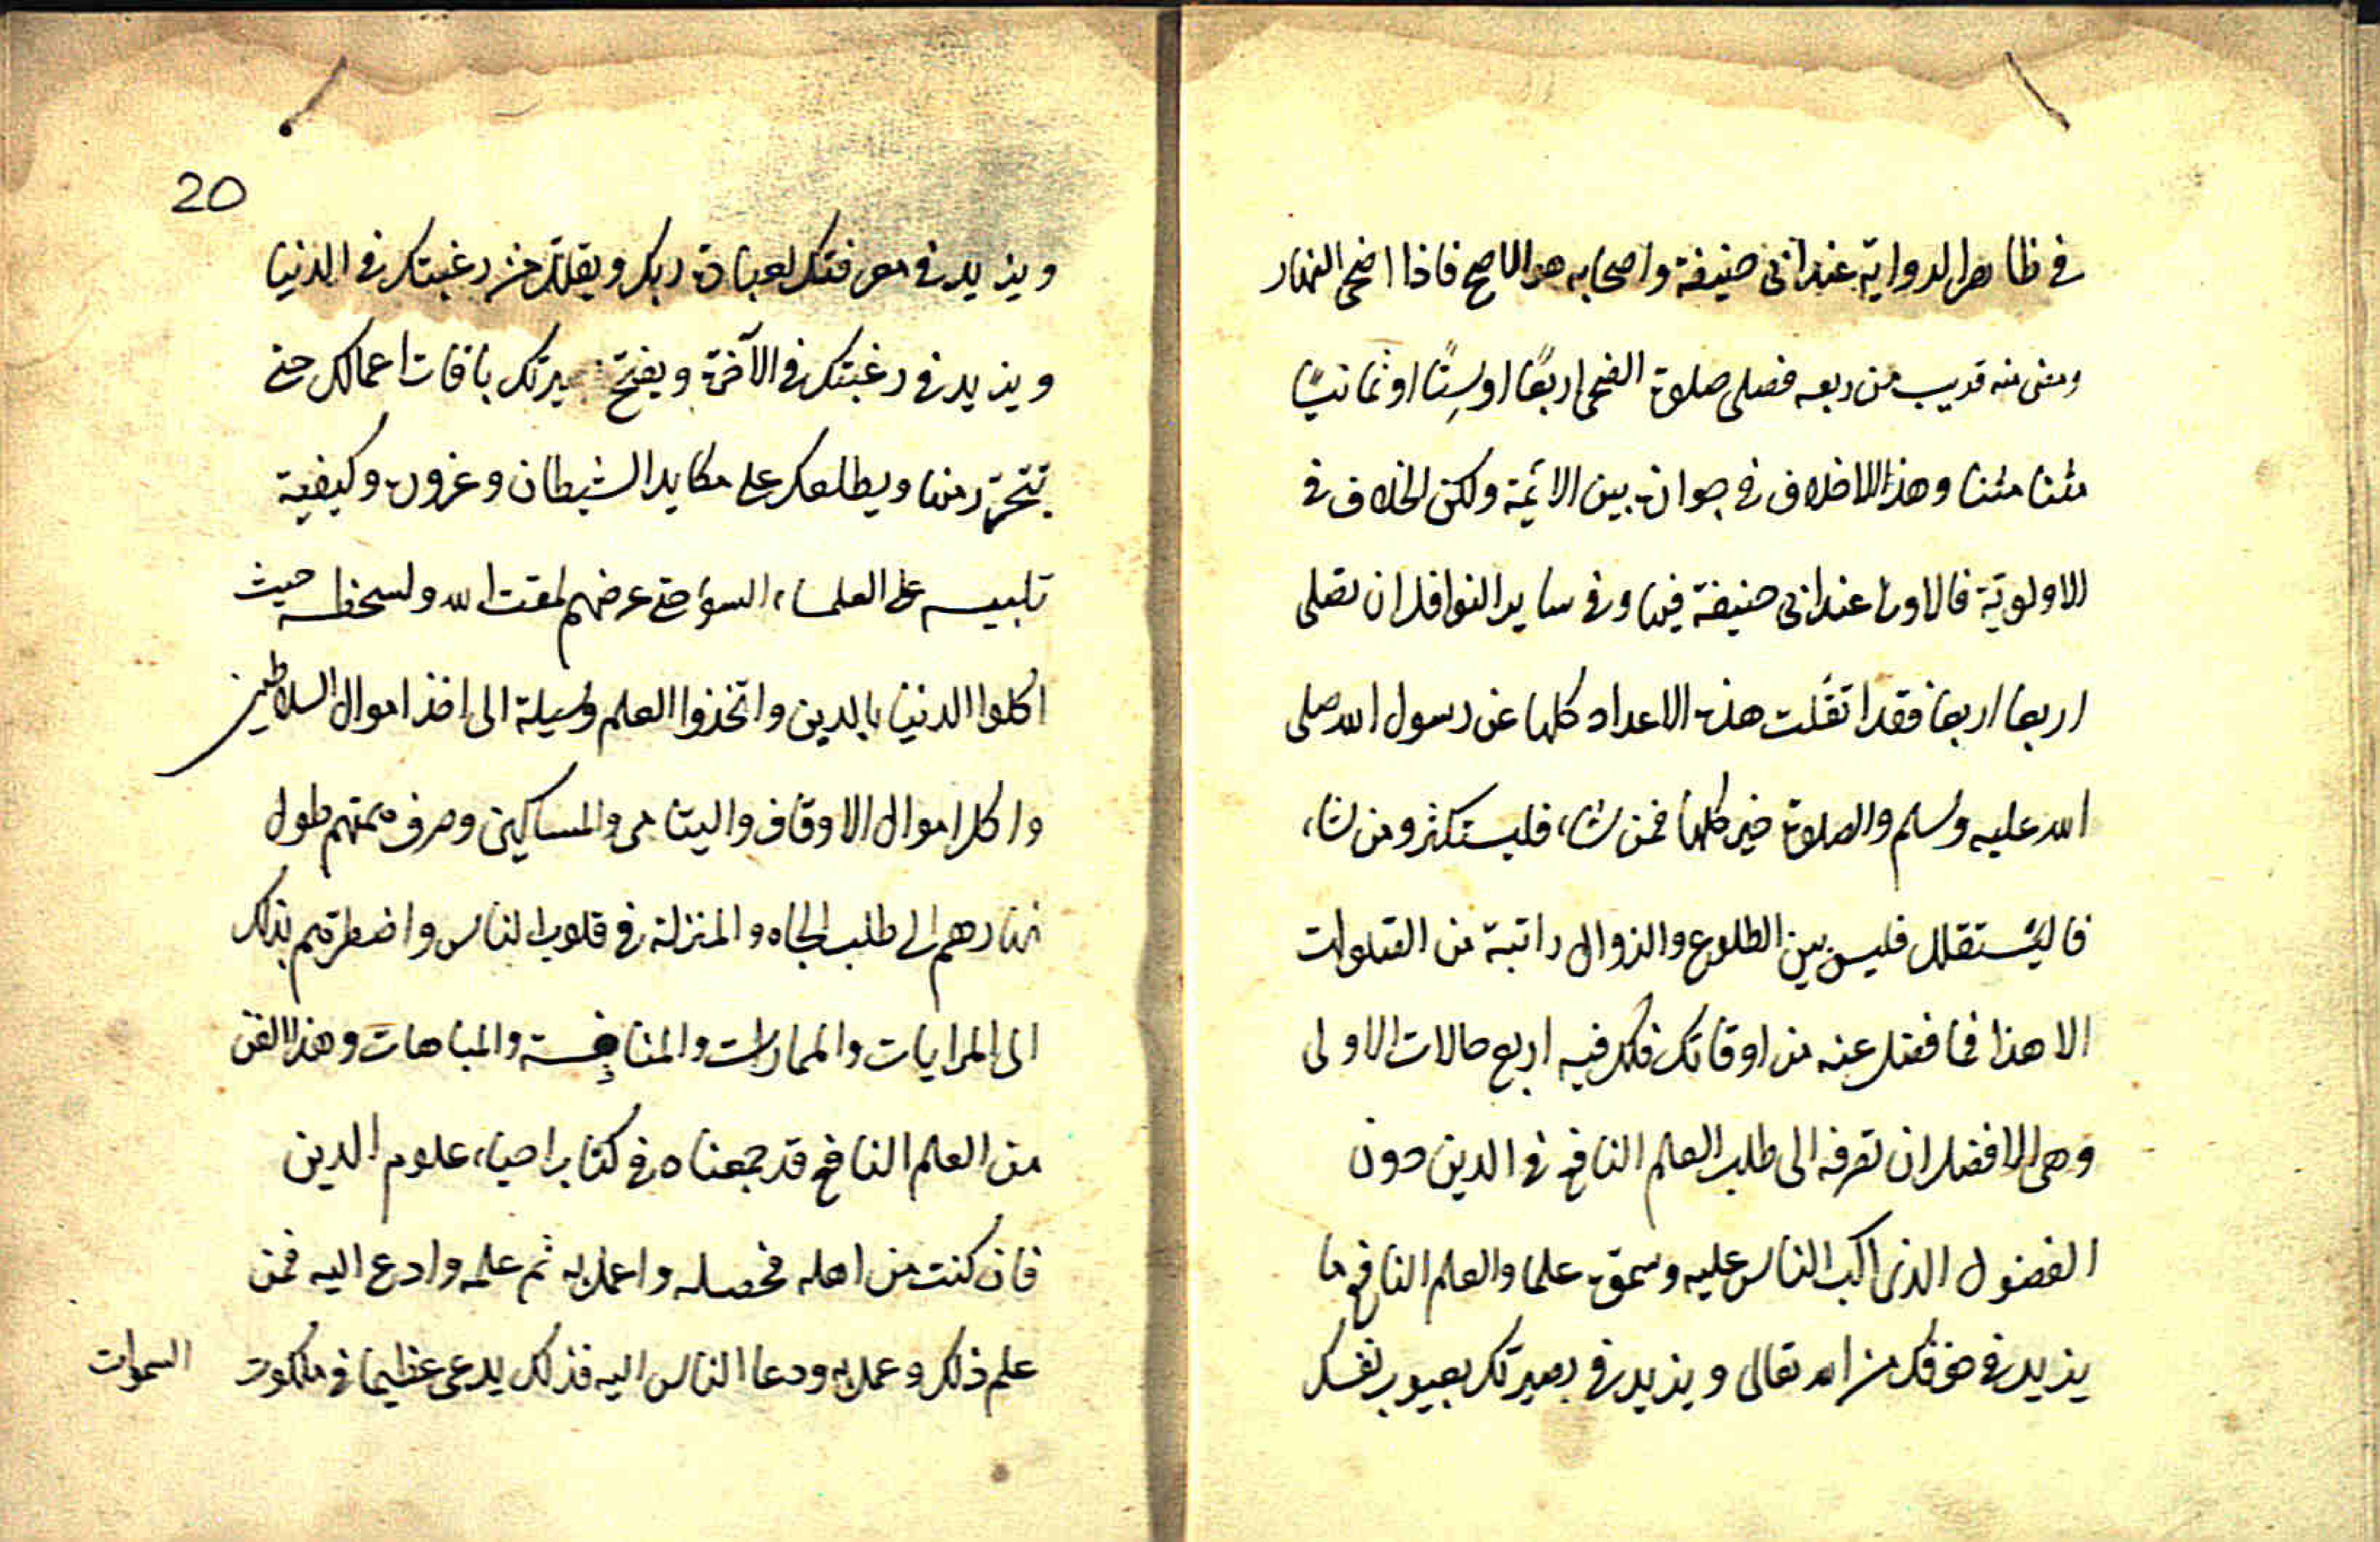 في ظاهر الرواية عند ابى حنيفة واصحابه هو الاصح فاذا اضحى النهار
ومضى منه قريب من ربعه فصلى صلوة الضحى اربعًا او سِتًا او ثمانيًا
مثنا مثنا وهذا الاختلاف في جوازه بين الائمة ولكن الخلاف في
الاولويّة فالاولى عند ابى حنيفة فيها وفي ساير النوافل ان تصلى
اربعا اربعا فقد انقلت هذه الاعداد كلها عن رسول الله صلى
الله عليه وسلم والصلوة خير كلها فمن شاء فليستكثر ومن شاء
فاليستقلل فليس بين الطلوع والزوال راتبة من الصلوات
الا هذا فما فضل عنه من اوقاتك فلك فيه اربع حالات الاولى
وهى الافضل ان تصرفه الى طلب العلم النافع في الدين دون
الفضول الذى اكب الناس عليه وسموه علما والعلم النافع ما
يزيد في خوفك من الله تعالى ويزيد في بصيرتك بعيوب نفسك
20
ويزيد في معرفتك لعبادة ربك ويقلل من رغبتك في الدنيا
ويزيد في رغبتك في الآخرة ويفتح بصيرتك بافات اعمالك حتى
تتحرّز منها ويطلعك على مكايد الشيطان وغروره وكيفية
تلبيسه على العلماء السوء حتى عرضهم لمقت الله ولسخطه حيث
اكلوا الدنيا بالدين واتخذوا العلم وسيلة الى اخذ اموال السلاطين
واكل اموال الاوقاف واليتامى والمساكين وصرف همتهم طول
نهارهم الى طلب الجاه والمنزلة في قلوب الناس واضطرهم بذلك
الى المرايات والممارات والمنافسة والمباهات وهذا الفن
من العلم النافع قد جمعناه في كتاب احياء علوم الدين
فان كنت من اهله فحصله واعمل به ثم علمه وادع اليه فمن
علم ذلك وعمل به ودعا الناس اليه فذلك يدعى عظيما في ملكوت
السموات